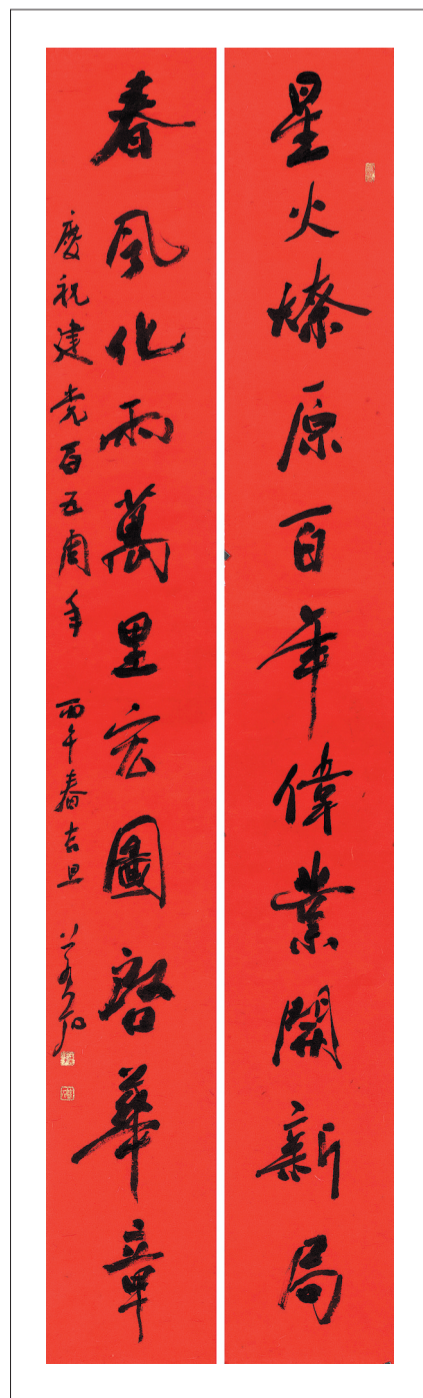 星火燎原百年偉業開新局
春風化雨萬里宏圖啓華章
慶祝建党百五周年 丙午春吉旦